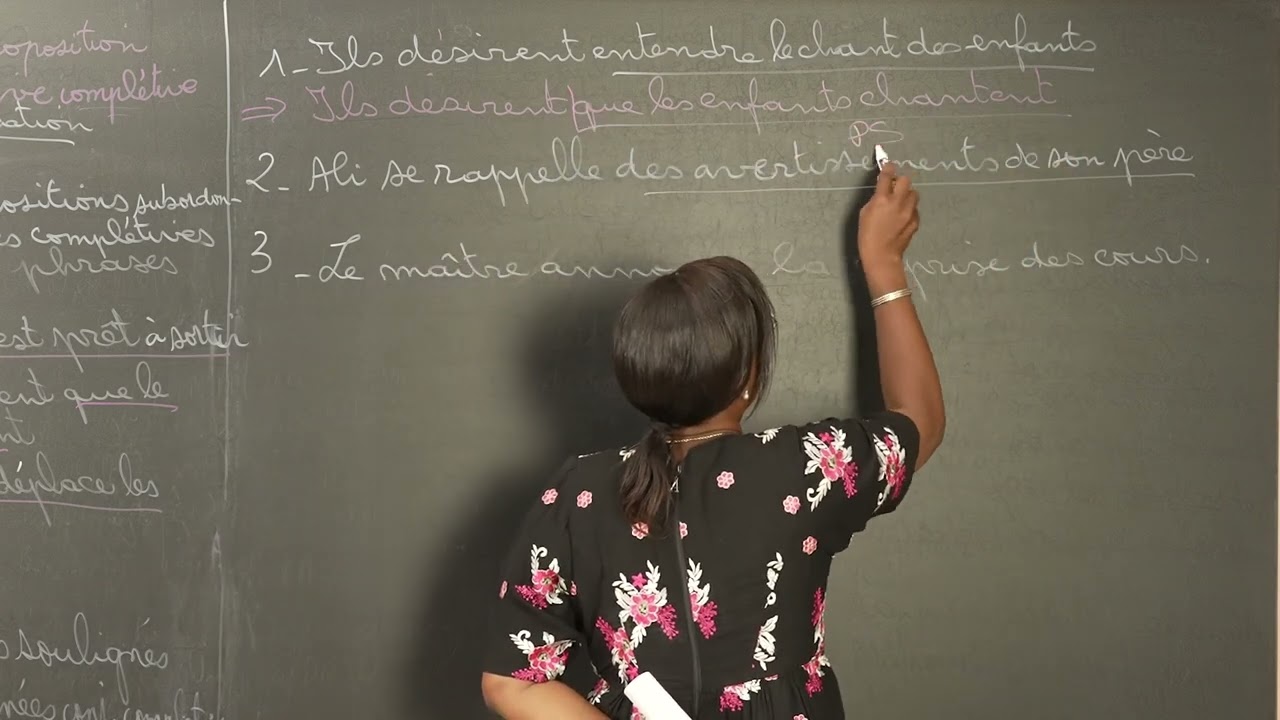 oposition
ve complétive
ation
ositions subordon-
es complétives
phrases
est prêt à sortir
ent que le
nt
déplace les
soulignés
1 - Ils désirent entendre le chant des enfants
⇒ Ils désirent que les enfants chantent
PS
2 - Ali se rappelle des avertissements de son père
3 - Le maître anno la prise des cours.